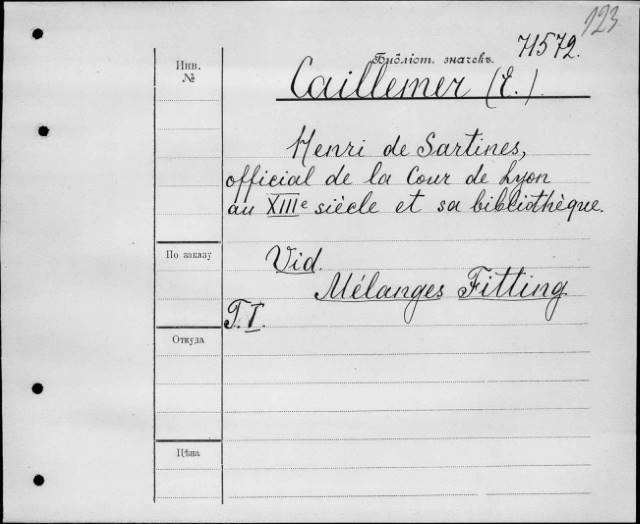 123
Инв.
№
Библіот. значекъ.
71572.
Caillemer (E.).
Henri de Sartines,
official de la Cour de Lyon
au XIIIe siècle et sa bibliothèque.
По заказу
Vid.
Mélanges Fitting
T. I.
Откуда
Цѣна